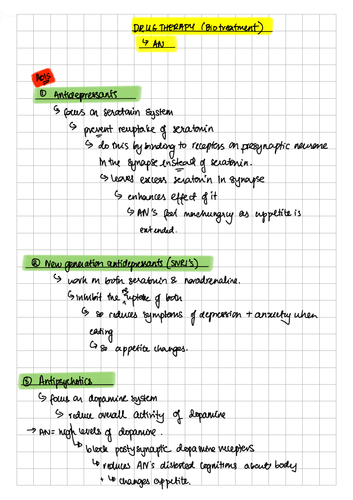 DRUG THERAPY (Biotreatment)
↳ AN
AO1s
① Antidepressants
↳ focus on seratonin system
↳ prevent reuptake of seratonin
↳ do this by binding to receptors on presynaptic neurone
in the synapse instead of seratonin.
↳ leaves excess seratonin in synapse
↳ enhances effect of it
↳ AN's feel more hungry as appetite is
extended.
② New generation antidepressants (SNRI's)
↳ work on both seratonin & noradrenaline.
↳ inhibit the re uptake of both
↳ so reduces symptoms of depression + anxiety when
eating
↳ so appetite changes.
③ Antipsychotics
↳ focus on dopamine system
↳ reduce overall activity of dopamine
→ AN = high levels of dopamine.
↳ block postsynaptic dopamine receptors
↳ reduces AN's distorted cognitions about body
+ changes appetite.